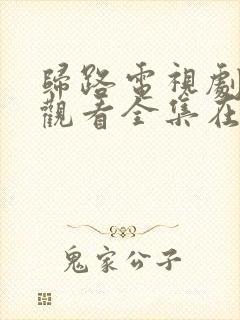 歸路電視劇
觀看全集在
鬼家公子